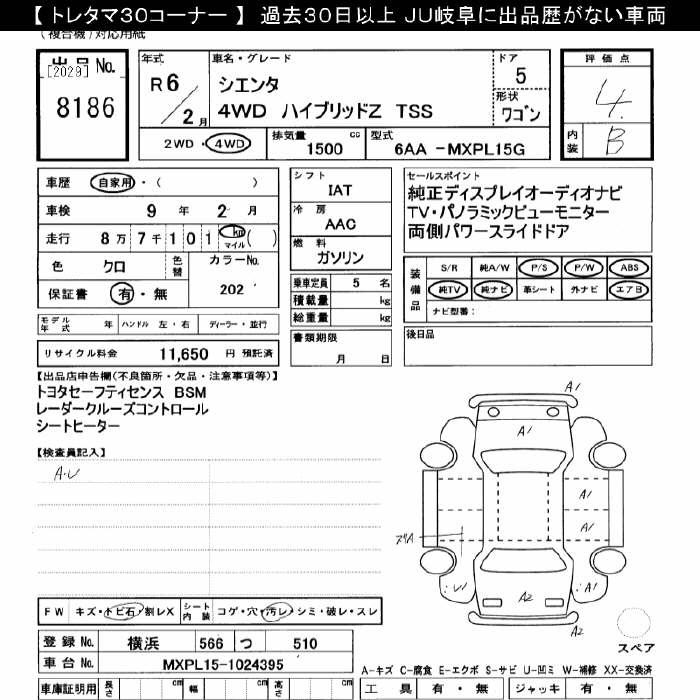 【 トレタマ30コーナー 】 過去30日以上 JU岐阜に出品歴がない車両
(複合機)対応用紙
出品 No.
[2029]
8186
年式
R6/2月
車名・グレード
シエンタ
4WD ハイブリッドZ TSS
ドア
5
形状
ワゴン
評価点
4.
内装
B
2WD・4WD
排気量 cc
1500
型式
6AA -MXPL15G
車歴 自家用・( )
車検 9 年 2 月
走行 8万7千101 km マイル ( )
色 クロ 色替 カラーNo.
保証書 有・無 202
シフト
IAT
冷房
AAC
燃料
ガソリン
乗車定員 5 名
積載量 kg
総重量 kg
書類期限
月 日
セールスポイント
純正ディスプレイオーディオナビ
TV・パノラミックビューモニター
両側パワースライドドア
装備品
S/R 純A/W P/S P/W ABS
純TV 純ナビ 革シート 外ナビ エアB
ナビ型番:
後日品
モデル年式 年 ハンドル 左・右 ディーラー・並行
リサイクル料金 11,650 円 預託済
【出品店申告欄(不良箇所・欠品・注意事項等)】
トヨタセーフティセンス BSM
レーダークルーズコントロール
シートヒーター
【検査員記入】
A・U
A1
A1
A1
A1
ズリA
・U1
・A1
A2
A2
スペア
FW キズ・トビ石・割レX シート内装 コゲ・穴・汚レ・シミ・破レ・スレ
登録 No. 横浜 566 つ 510
車台 No. MXPL15-1024395
A-キズ C-腐食 E-エクボ S-サビ U-凹ミ W-補修 XX-交換済
車庫証明用 長さ cm 幅 cm 高さ cm
工具 有・無 ジャッキ 有・無